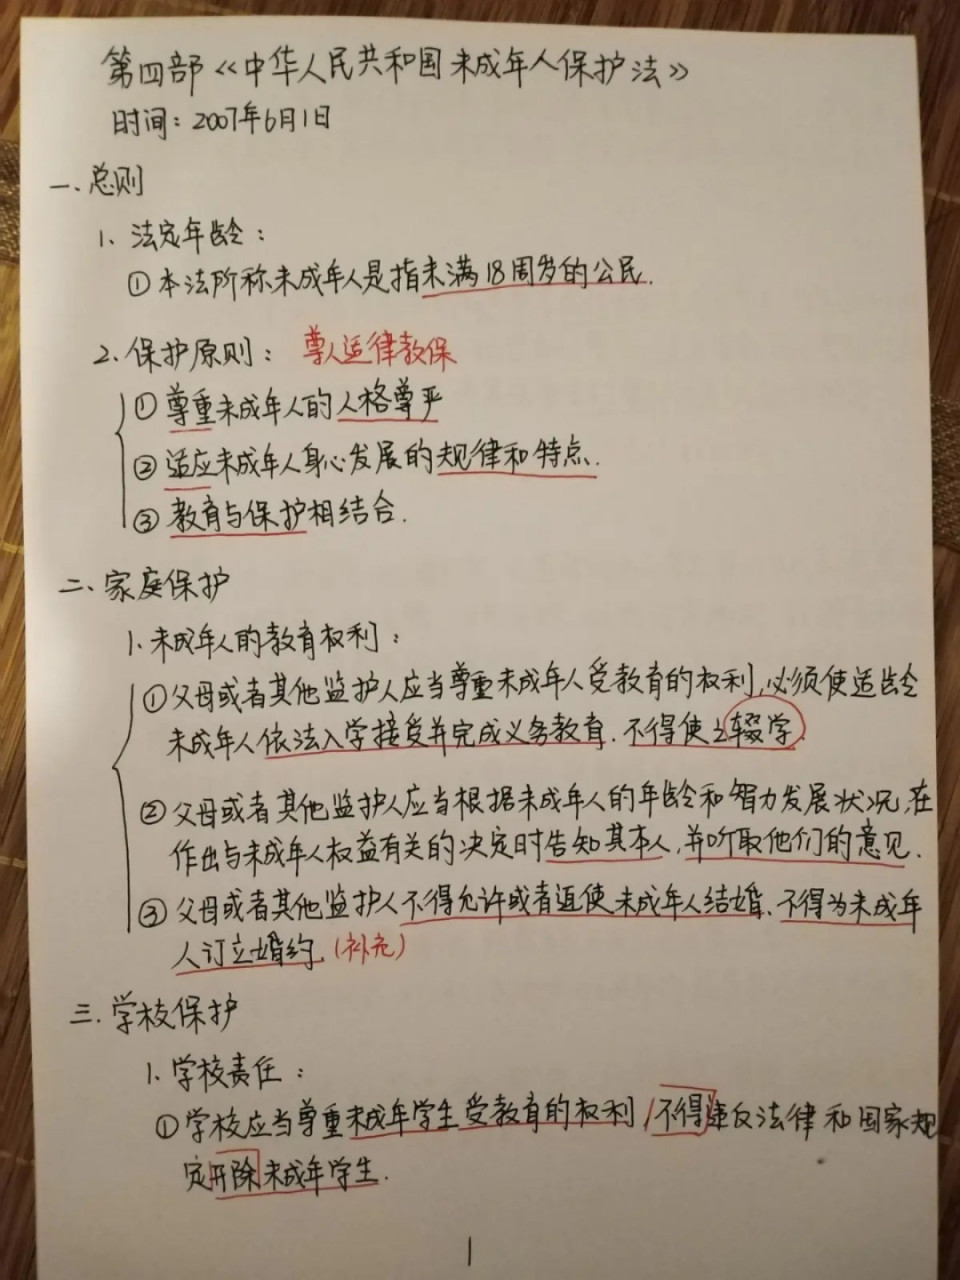 第四部《中华人民共和国未成年人保护法》
时间：2007年6月1日
一、总则
1、法定年龄：
①本法所称未成年人是指未满18周岁的公民.
2、保护原则： 尊人适律教保
①尊重未成年人的人格尊严
②适应未成年人身心发展的规律和特点.
③教育与保护相结合.
二、家庭保护
1、未成年人的教育权利：
①父母或者其他监护人应当尊重未成年人受教育的权利,必须使适龄
未成年人依法入学接受并完成义务教育.不得使之辍学.
②父母或者其他监护人应当根据未成年人的年龄和智力发展状况,在
作出与未成年人权益有关的决定时告知其本人,并听取他们的意见.
③父母或者其他监护人不得允许或者迫使未成年人结婚、不得为未成年
人订立婚约.(补充)
三、学校保护
1、学校责任：
①学校应当尊重未成年学生受教育的权利,不得违反法律和国家规
定开除未成年学生.
1